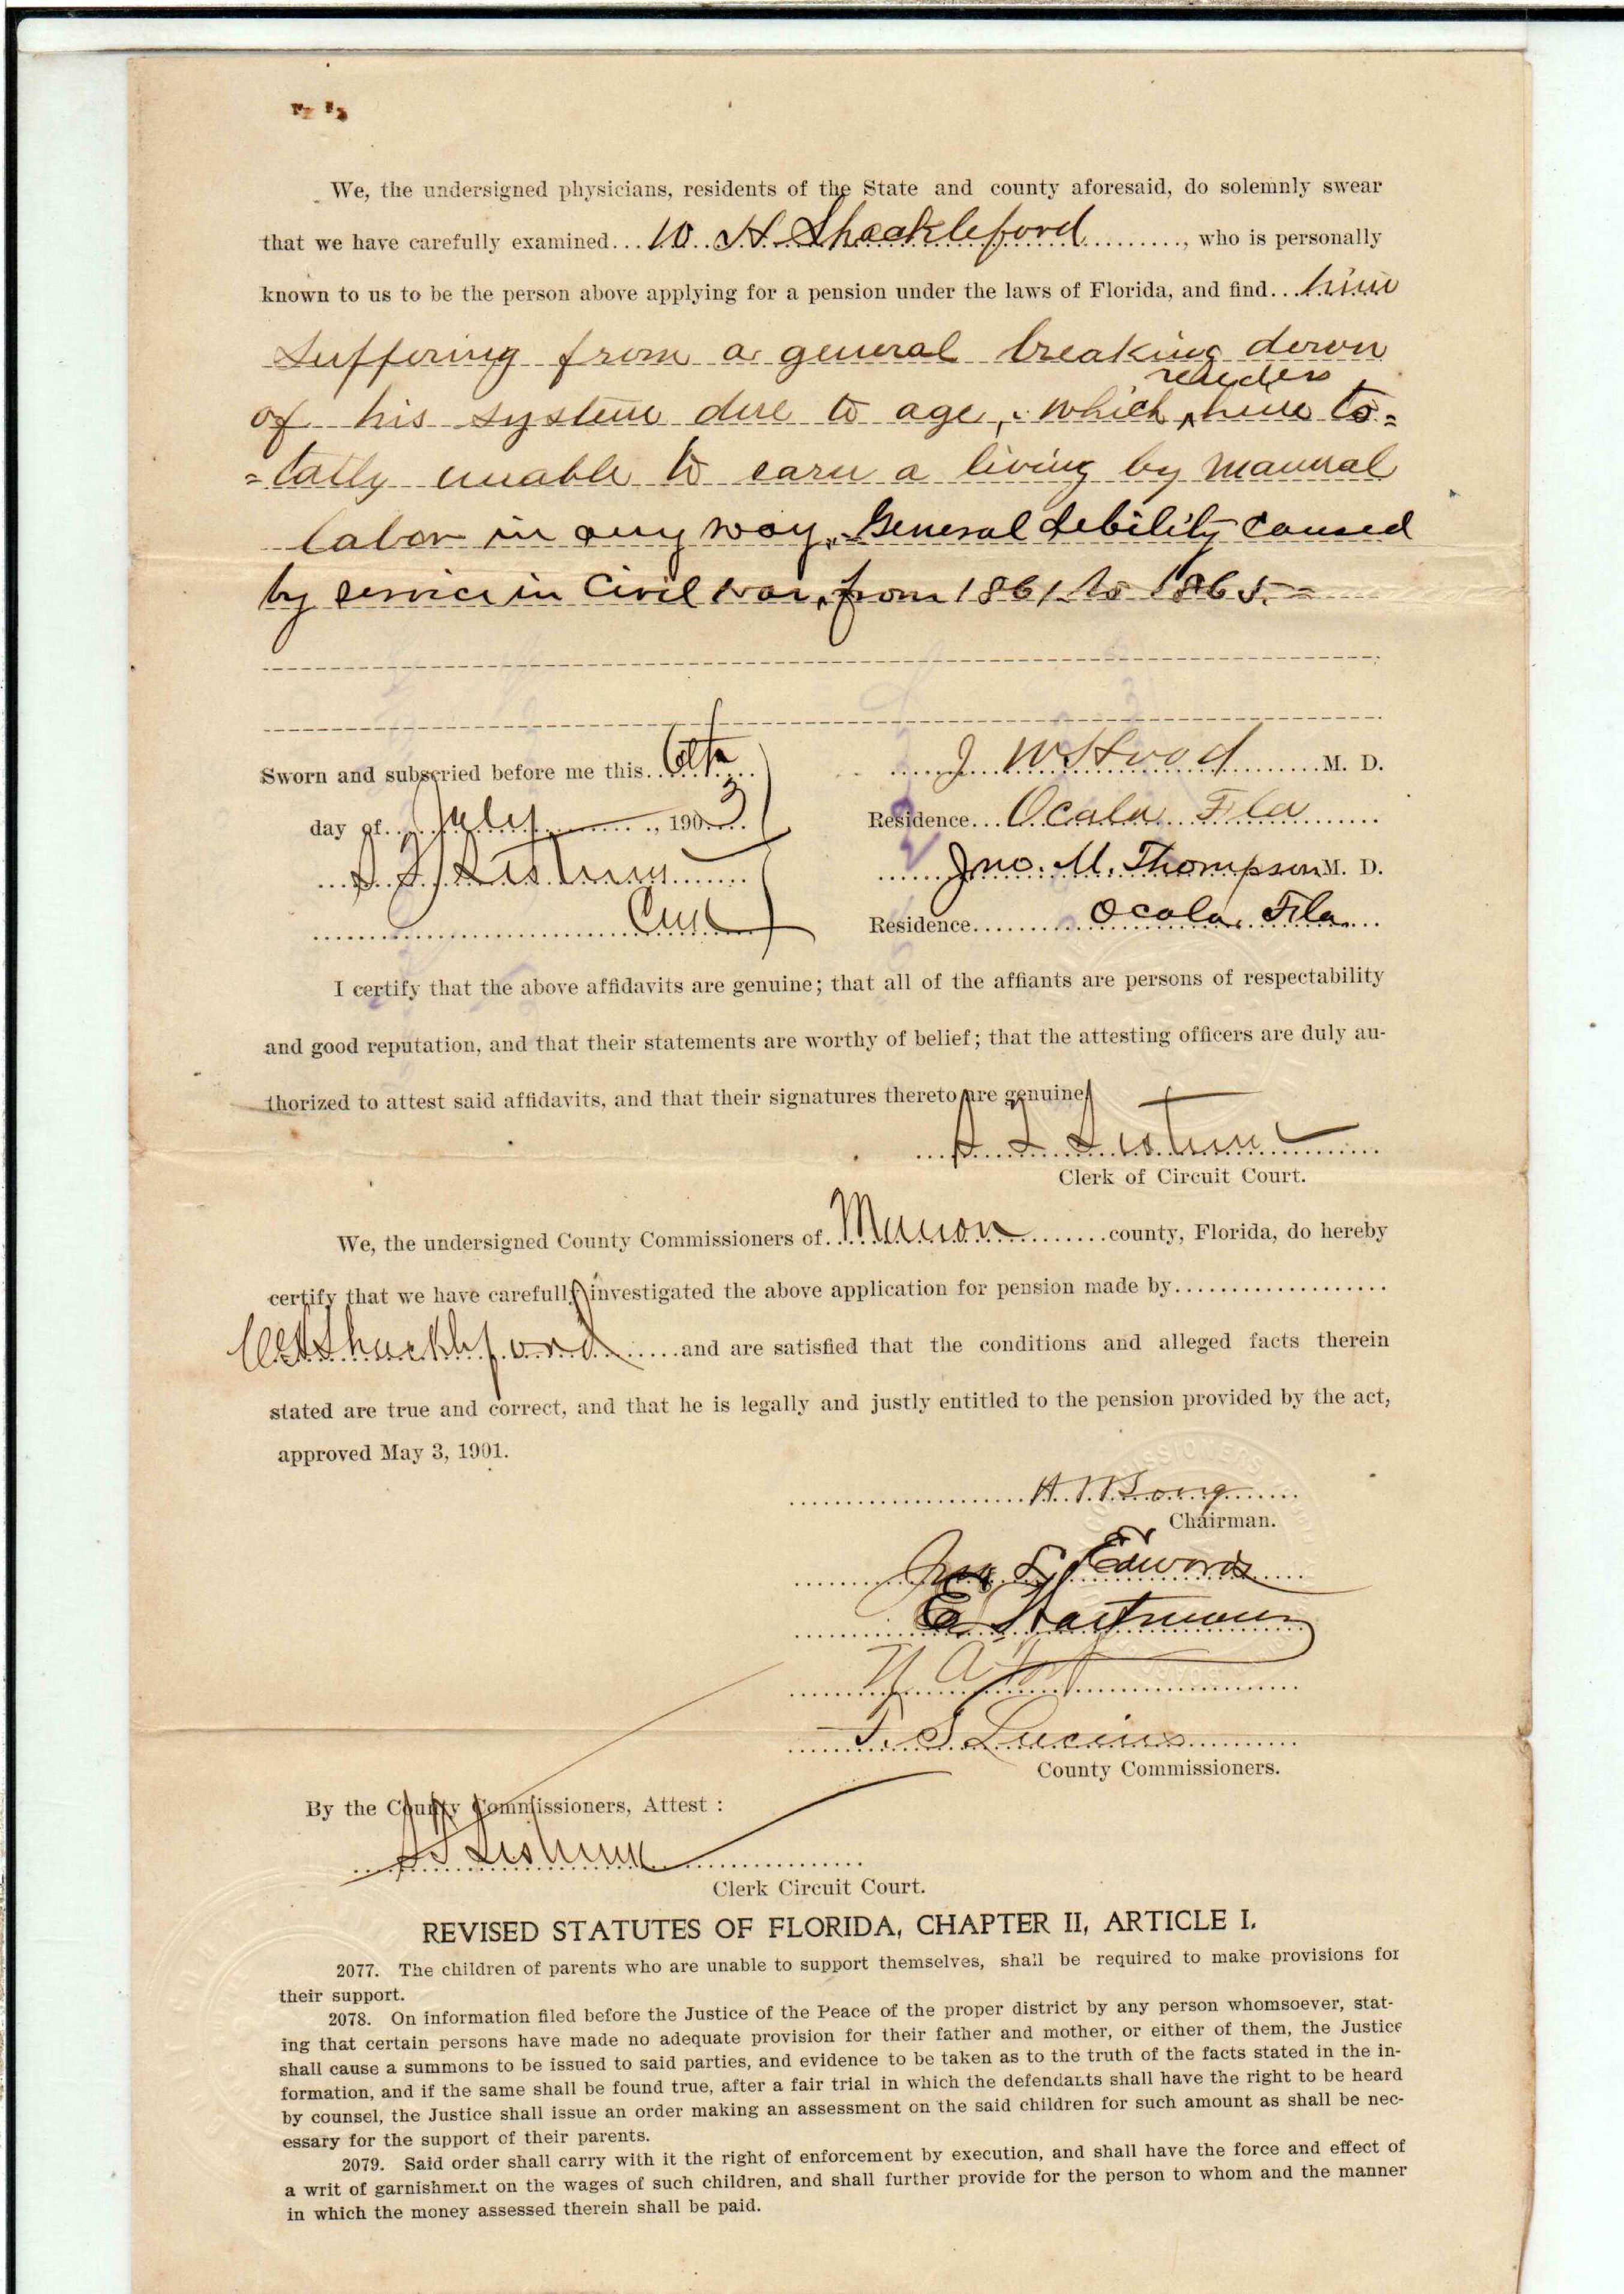 We, the undersigned physicians, residents of the State and county aforesaid, do solemnly swear
that we have carefully examined... W. H. Shackleford..........., who is personally
known to us to be the person above applying for a pension under the laws of Florida, and find... him
suffering from a general breaking down
renders
of his system due to age, which ^ him to=
=tally unable to earn a living by manual
labor in any way. General debility caused
by service in Civil war, from 1861 to 1865.=
Sworn and subscried before me this.. 6th
J W Hood M. D.
day of... July ......, 1903
Residence... Ocala Fla
Jno. M. Thompson M. D.
Clerk
Residence........... Ocala, Fla.
I certify that the above affidavits are genuine; that all of the affiants are persons of respectability
and good reputation, and that their statements are worthy of belief; that the attesting officers are duly au-
thorized to attest said affidavits, and that their signatures thereto are genuine.
Clerk of Circuit Court.
We, the undersigned County Commissioners of.. Marion ........county, Florida, do hereby
certify that we have carefully investigated the above application for pension made by....................
W H Shackleford ......and are satisfied that the conditions and alleged facts therein
stated are true and correct, and that he is legally and justly entitled to the pension provided by the act,
approved May 3, 1901.
H. W Long
Chairman.
Jno L Edwards
E Hartman
T. S Lucius
County Commissioners.
By the County Commissioners, Attest :
Clerk Circuit Court.
REVISED STATUTES OF FLORIDA, CHAPTER II, ARTICLE I.
2077. The children of parents who are unable to support themselves, shall be required to make provisions for
their support.
2078. On information filed before the Justice of the Peace of the proper district by any person whomsoever, stat-
ing that certain persons have made no adequate provision for their father and mother, or either of them, the Justice
shall cause a summons to be issued to said parties, and evidence to be taken as to the truth of the facts stated in the in-
formation, and if the same shall be found true, after a fair trial in which the defendants shall have the right to be heard
by counsel, the Justice shall issue an order making an assessment on the said children for such amount as shall be nec-
essary for the support of their parents.
2079. Said order shall carry with it the right of enforcement by execution, and shall have the force and effect of
a writ of garnishment on the wages of such children, and shall further provide for the person to whom and the manner
in which the money assessed therein shall be paid.